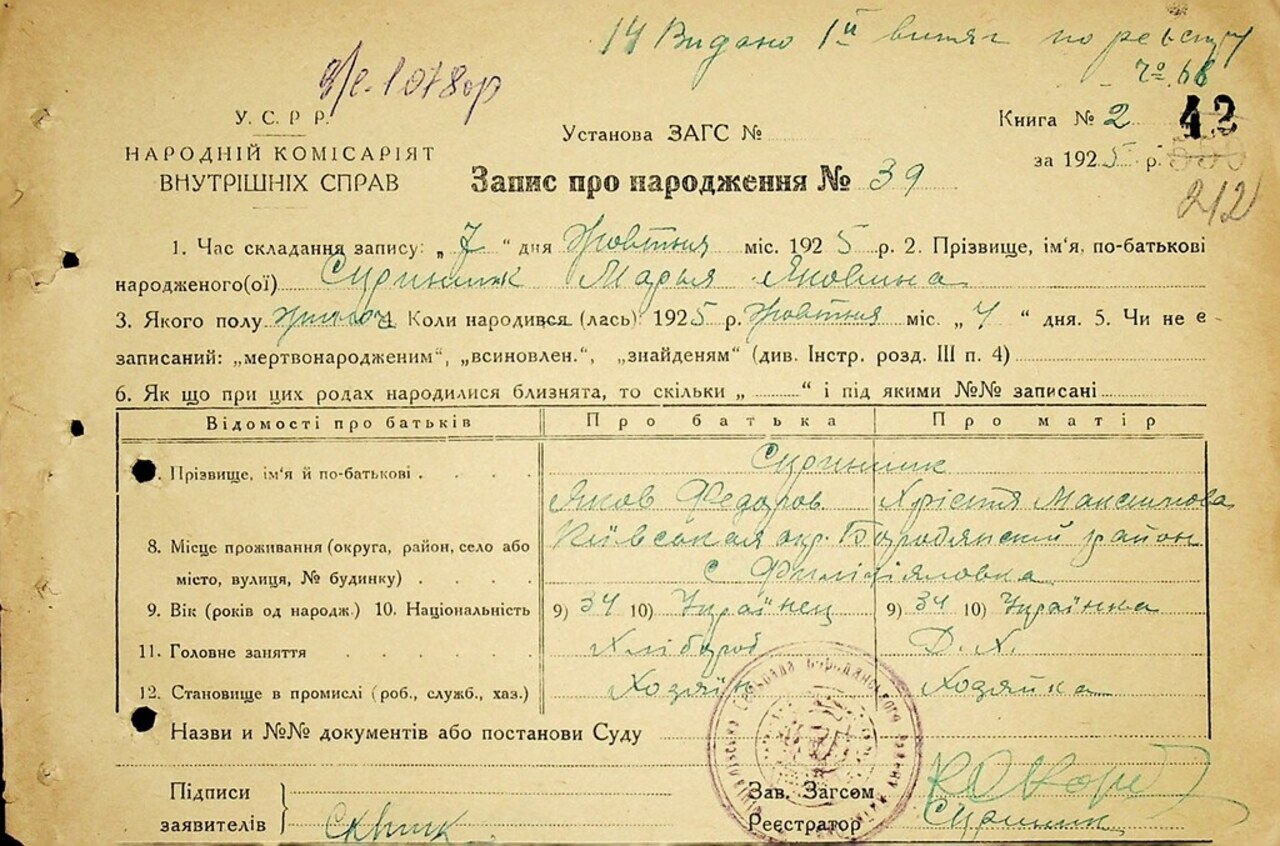 14 Видано 1й витяг по реєстру
№ 68
У. С. Р. Р.
НАРОДНІЙ КОМІСАРІЯТ
ВНУТРІШНІХ СПРАВ
Установа ЗАГС №
Книга № 2 42
за 1925 р.
212
Запис про народження № 39
1. Час складання запису: „ 7 “ дня Жовтня міс. 1925 р. 2. Прізвище, ім'я, по-батькові
народженого(ої) Скриннік Марья Яковина
3. Якого полу 4. Коли народився (лась): 1925 р. Жовтня міс. „ 4 “ дня. 5. Чи не є
записаний: „мертвонародженим“, „всиновлен.“, „знайденям“ (див. Інстр. розд. III п. 4)
6. Як що при цих родах народилися близнята, то скільки „ “ і під якими №№ записані
Відомості про батьків Про батька Про матір
Прізвище, ім'я й по-батькові Скринник
Яков Федоров Хрістя Максимова
8. Місце проживання (округа, район, село або Київськая окр. Бородянский район
місто, вулиця, № будинку) с Филіпіяловка
9. Вік (років од народж.) 10. Національність 9) 34 10) Украінец 9) 34 10) Украінка
11. Головне заняття Хлібороб Д. Х.
12. Становище в промислі (роб., служб., хаз.) Хозяін Хозяйка
Назви и №№ документів або постанови Суду
Підписи
заявителів
Зав. Загсом
Реєстратор Скринник